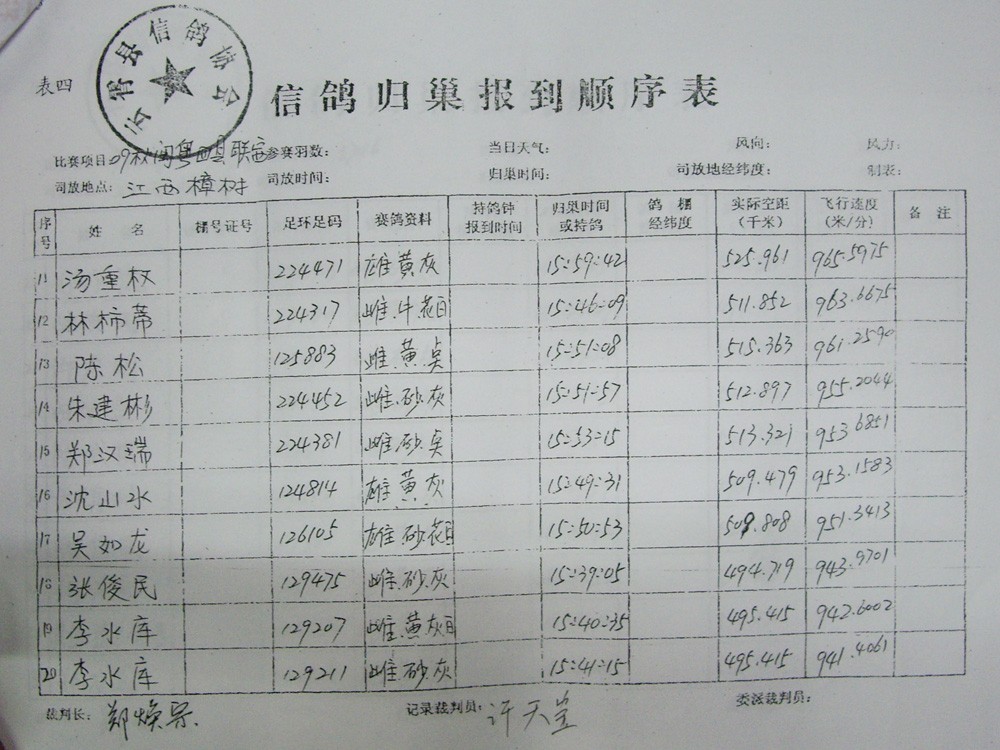 表四
云霄县信鸽协会
信鸽归巢报到顺序表
比赛项目: 09秋闽粤四县联 参赛羽数: 当日天气: 风向: 风力:
司放地点: 江西樟树 司放时间: 归巢时间: 司放地经纬度: 制表:
序号 姓名 棚号证号 足环足码 赛鸽资料 持鸽钟报到时间 归巢时间或持鸽 鸽棚经纬度 实际空距(千米) 飞行速度(米/分) 备注
11 汤重权 224471 雄黄灰 15:59:42 525.961 965.5975
12 林柿蒂 224317 雌.牛花目 15:46:09 511.852 963.6675
13 陈松 125883 雌.黄 15:51:08 515.363 961.2590
14 朱建彬 224452 雌.砂.灰 15:51:57 512.897 955.2044
15 郑汉瑞 224381 雌砂. 15:53:15 513.321 953.6851
16 沈山水 124814 雄黄灰 15:49:31 509.479 953.1583
17 吴如龙 126105 雄.砂.花目 15:50:53 509.808 951.3413
18 张俊民 129475 雌.砂.灰 15:39:05 494.719 943.9701
19 李水库 129207 雌.黄灰目 15:40:35 495.415 942.6002
20 李水库 129211 雌.砂.灰 15:41:15 495.415 941.4061
裁判长: 郑焕 记录裁判员: 许天堂 委派裁判员: